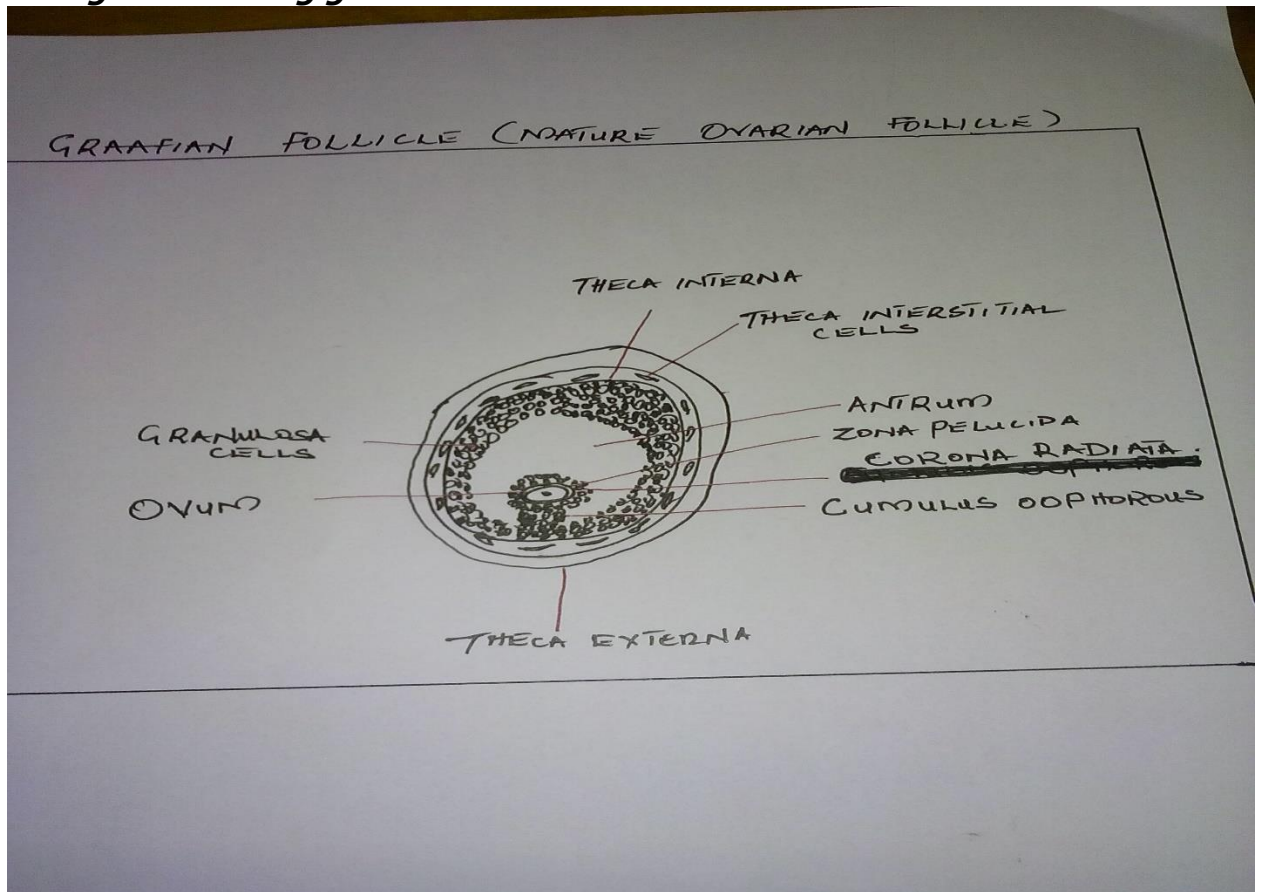 GRAAFIAN FOLLICLE (MATURE OVARIAN FOLLICLE)
THECA INTERNA
THECA INTERSTITIAL
CELLS
ANTRUM
ZONA PELUCIDA
CORONA RADIATA.
CUMULUS OOPHOROUS
GRANULOSA
CELLS
OVUM
THECA EXTERNA